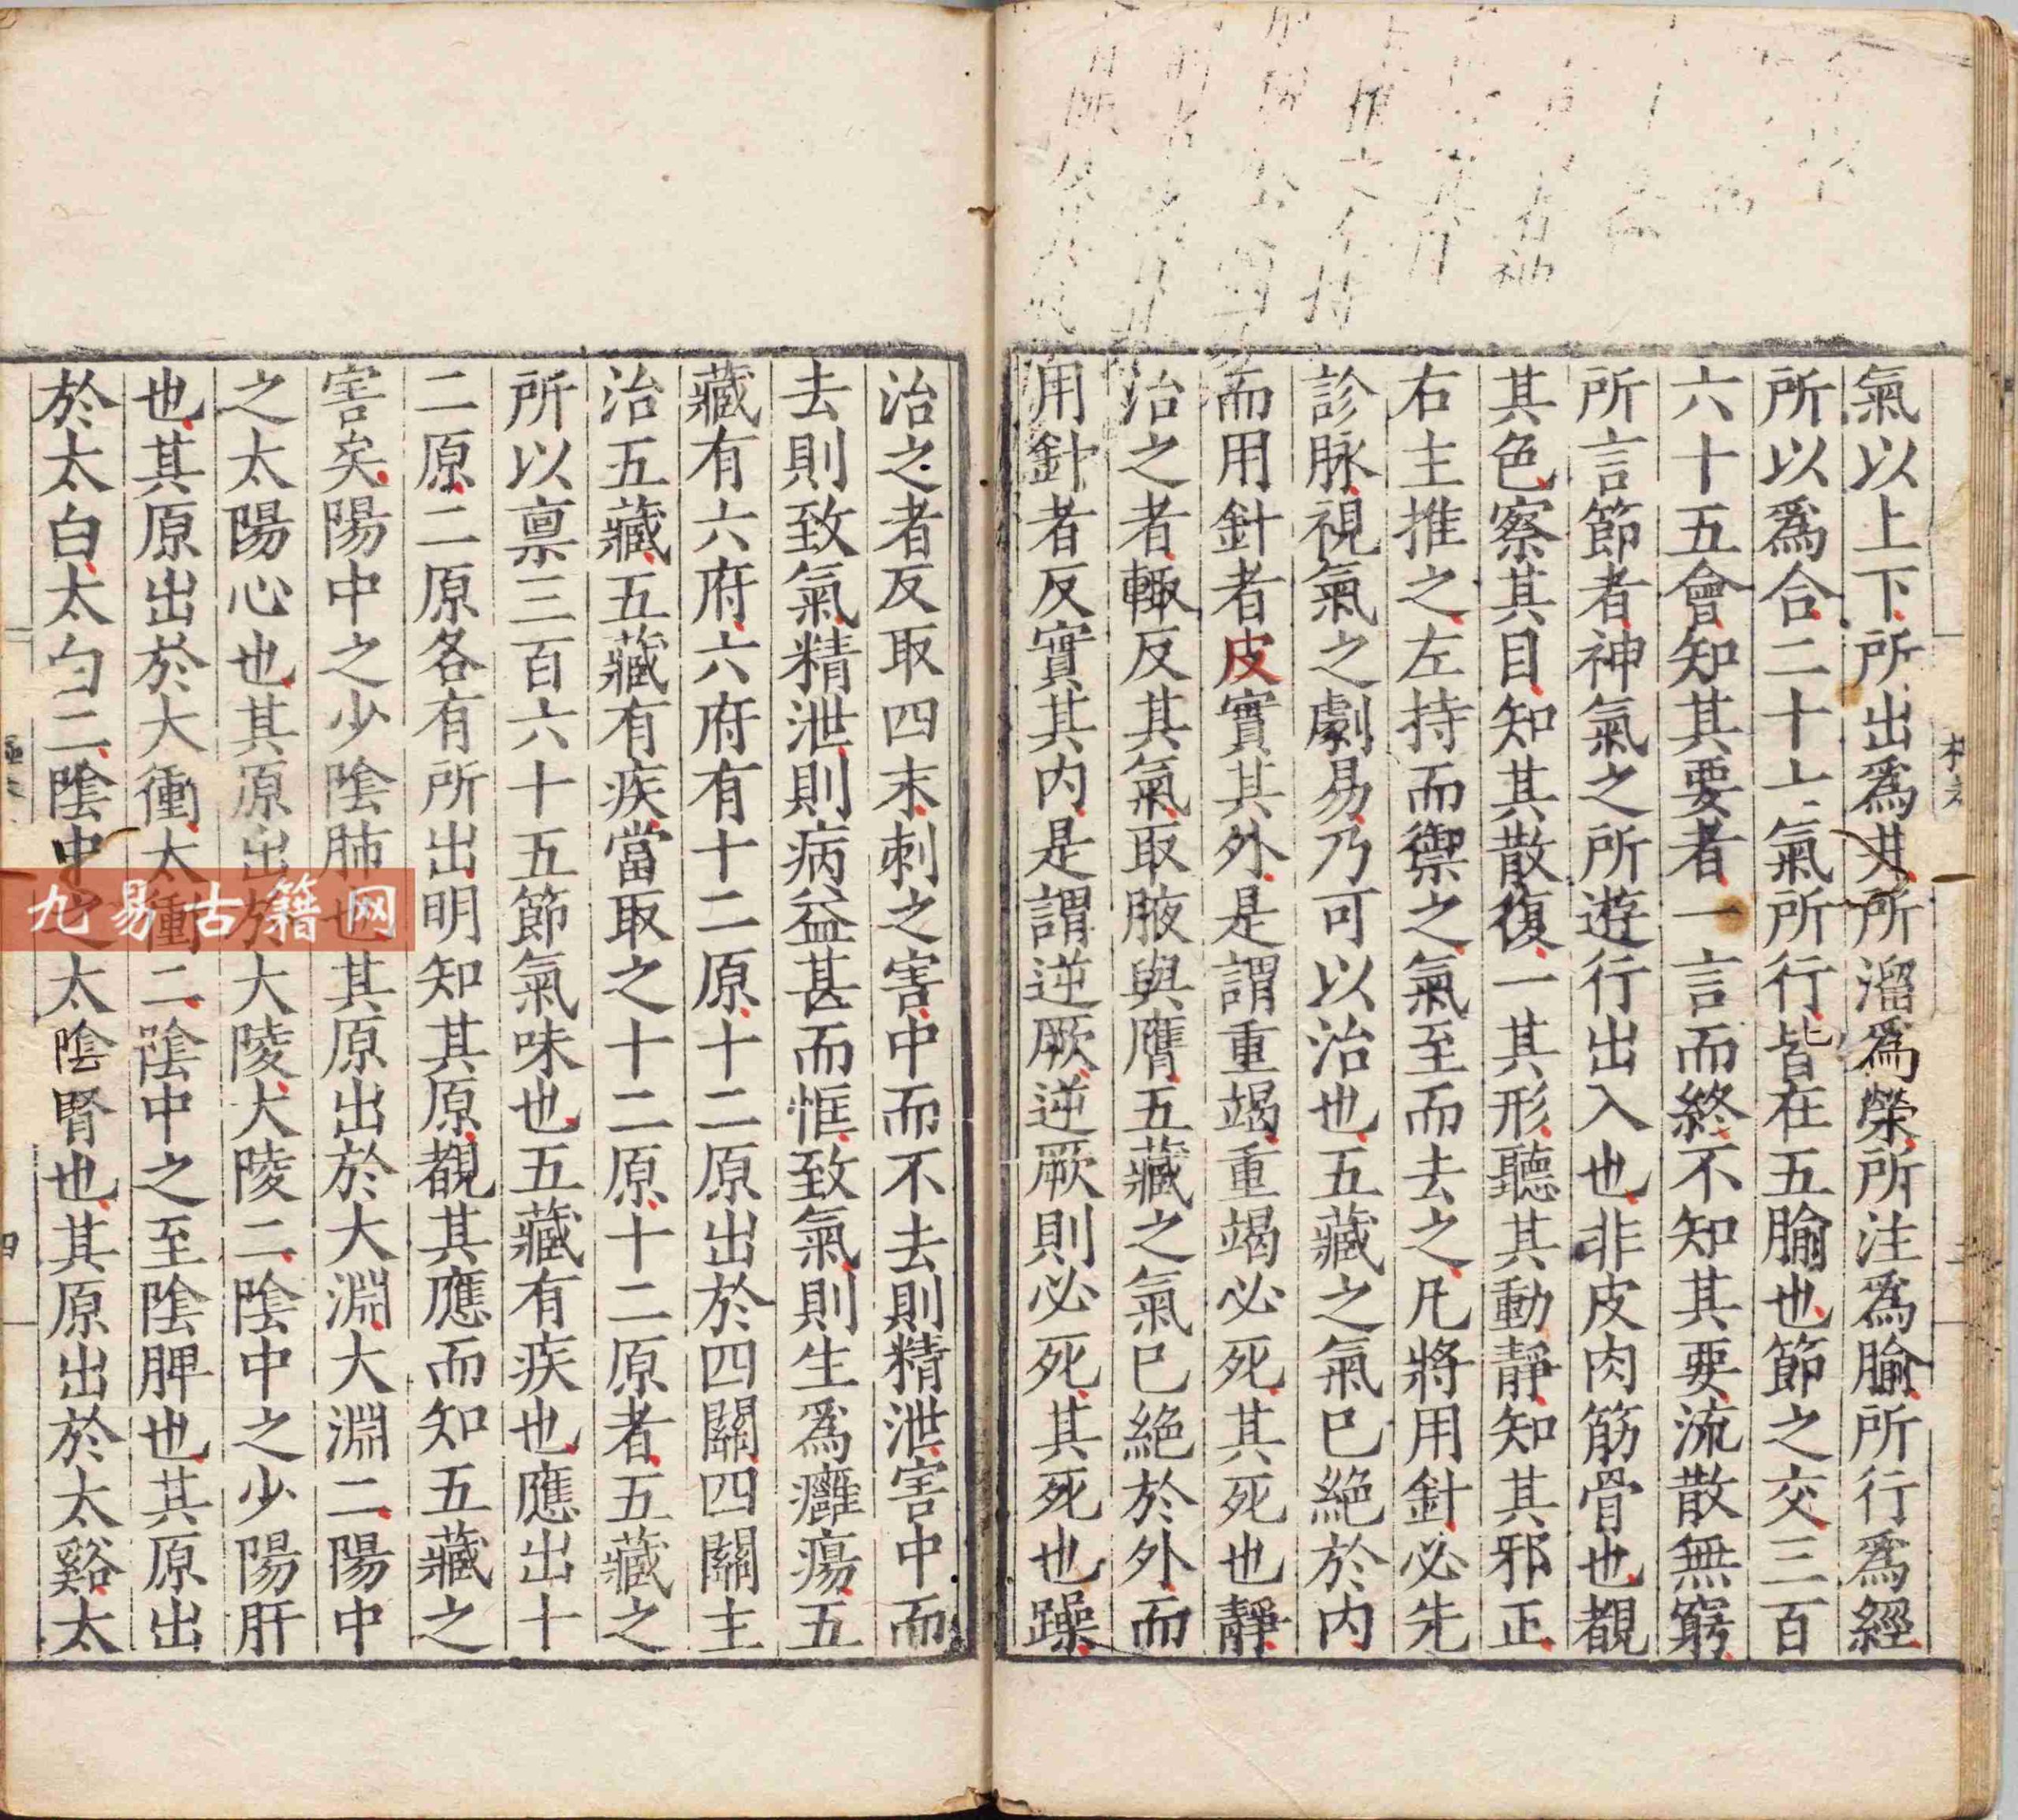 氣以上下所出爲井所溜爲滎所注爲腧所行爲經
所以爲合二十七氣所行皆在五腧也節之交三百
六十五會知其要者一言而終不知其要流散無窮
所言節者神氣之所遊行出入也非皮肉筋骨也覩
其色察其目知其散復一其形聽其動靜知其邪正
右主推之左持而禦之氣至而去之凡將用針必先
診脉視氣之劇易乃可以治也五藏之氣已絕於內
而用針者皮實其外是謂重竭重竭必死其死也靜
治之者輙反其氣取腋與膺五藏之氣已絕於外而
用針者反實其內是謂逆厥逆厥則必死其死也躁
治之者反取四末刺之害中而不去則精泄害中而
去則致氣精泄則病益甚而恇致氣則生爲癰瘍五
藏有六府六府有十二原十二原出於四關四關主
治五藏五藏有疾當取之十二原十二原者五藏之
所以禀三百六十五節氣味也五藏有疾也應出十
二原二原各有所出明知其原覩其應而知五藏之
害矣陽中之少陰肺也其原出於大淵大淵二陽中
之太陽心也其原出於大陵大陵二陰中之少陽肝
也其原出於大衝太衝二陰中之至陰脾也其原出
於太白太白二陰中之太陰腎也其原出於太谿太
九易古籍网